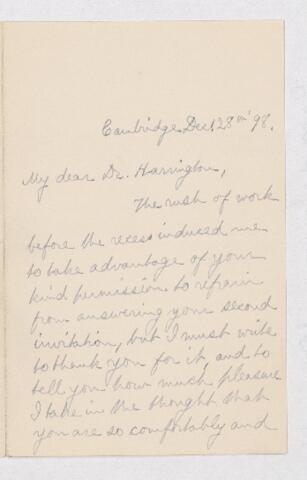 Cambridge Dec. 28th '98.
My dear Dr. Harrington,
The rush of work
before the recess induced me
to take advantage of your
kind permission to refrain
from answering your second
invitation, but I must write
to thank you for it and to
tell you how much pleasure
I take in the thought that
you are so comfortably and